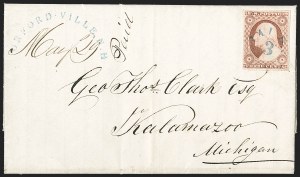 May 29
Paid
3
Geo Thos. Clark Esq
Kalamazoo
Michigan